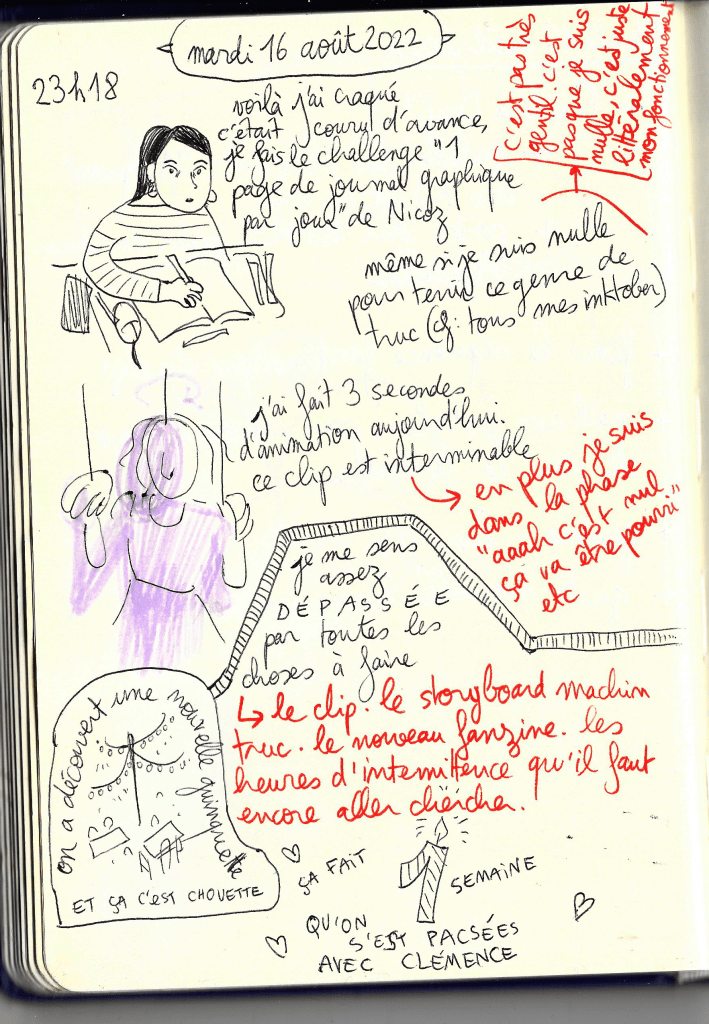 mardi 16 août 2022
23h18
voilà j'ai craqué
c'était couru d'avance,
je fais le challenge "1
page de journal graphique
par jour" de Nicoz
c'est pas très
gentil. c'est
pas que je suis
nulle, c'est juste
littéralement
mon fonctionnement
même si je suis nulle
pour tenir ce genre de
truc (cf: tous mes inktober)
j'ai fait 3 secondes
d'animation aujourd'hui.
ce clip est interminable
en plus je suis
dans la phase
"aaah c'est nul
ça va être pourri"
etc
je me sens
assez
DÉPASSÉE
par toutes les
choses à faire
le clip. le storyboard machin
truc. le nouveau fanzine. les
heures d'intermittence qu'il faut
encore aller chercher.
on a découvert une nouvelle guinguette
ET ÇA C'EST CHOUETTE
ÇA FAIT 1 SEMAINE
QU'ON
S'EST PACSÉES
AVEC CLÉMENCE